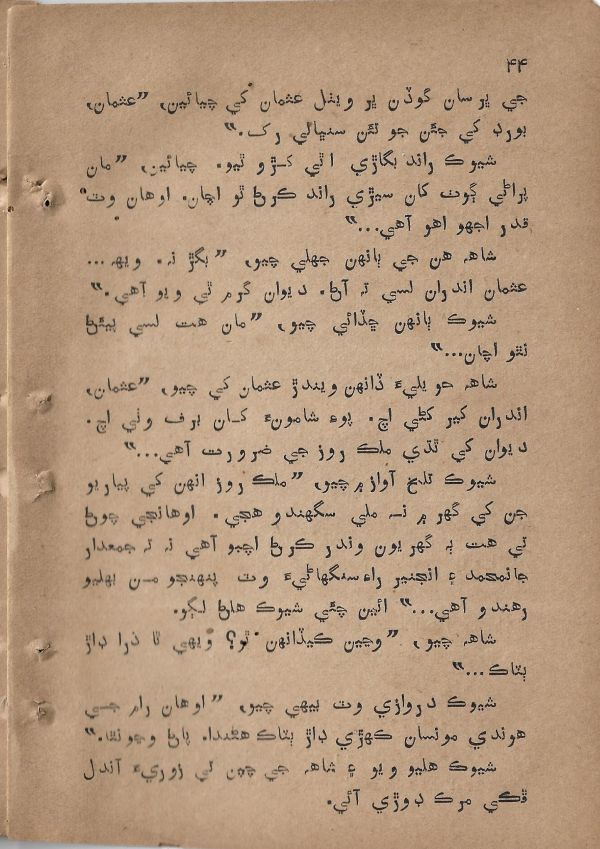 ۴۴
جي ڀرسان گوڏن ڀر ويٺل عثمان کي چيائين، ”عثمان،
بورڊ کي جئن جو تئن سنڀالي رک.“
شيوڪ راند بگاڙي اٿي کڙو ٿيو. چيائين، ”مان
پراڻي ڳوٺ کان سيڙي راند ڪرڻ ٿو اچان. اوهان وٽ
قدر اجهو اهو آهي...“
شاهه هن جي ٻانهن جهلي چيو، ”بگڙ نہ. ويهہ...
عثمان اندران لسي تہ آڻ. ديوان گرم ٿي ويو آهي.“
شيوڪ ٻانهن ڇڏائي چيو، ”مان هت لسي پيئڻ
نٿو اچان...“
شاهہ حويليءَ ڏانهن ويندڙ عثمان کي چيو، ”عثمان،
اندران کير کڻي اچ. پوءِ شامونءَ کان برف وٺي اچ.
ديوان کي ٿڌي ملڪ روز جي ضرورت آهي...“
شيوڪ تلخ آواز ۾ چيو، ”ملڪ روز انهن کي پياريو
جن کي گهر ۾ نہ ملي سگهندو هجي. اوهانجي چوڻ
تي هت ٻہ گهريون وندر ڪرڻ اچيو آهي نہ تہ جمعدار
جانمحمد ۽ انجنير راءِسنگهاڻيءَ وٽ پنهنجو من بهليو
رهندو آهي...“ ائين چئي شيوڪ هلڻ لڳو.
شاهہ چيو، ”وڃين ڪيڏانهن ٿو؟ ويهي ٿا ذرا ڊاڙ
ٻٽاڪ...“
شيوڪ دروازي وٽ بيهي چيو، ”اوهان رام جي
هوندي مونسان ڪهڙي ڊاڙ ٻٽاڪ هڻندا. پاڻ وڃونٿا.“
شيوڪ هليو ويو ۽ شاهہ جي چپن تي زوريءَ آندل
ڦڪي مرڪ ڊوڙي آئي.